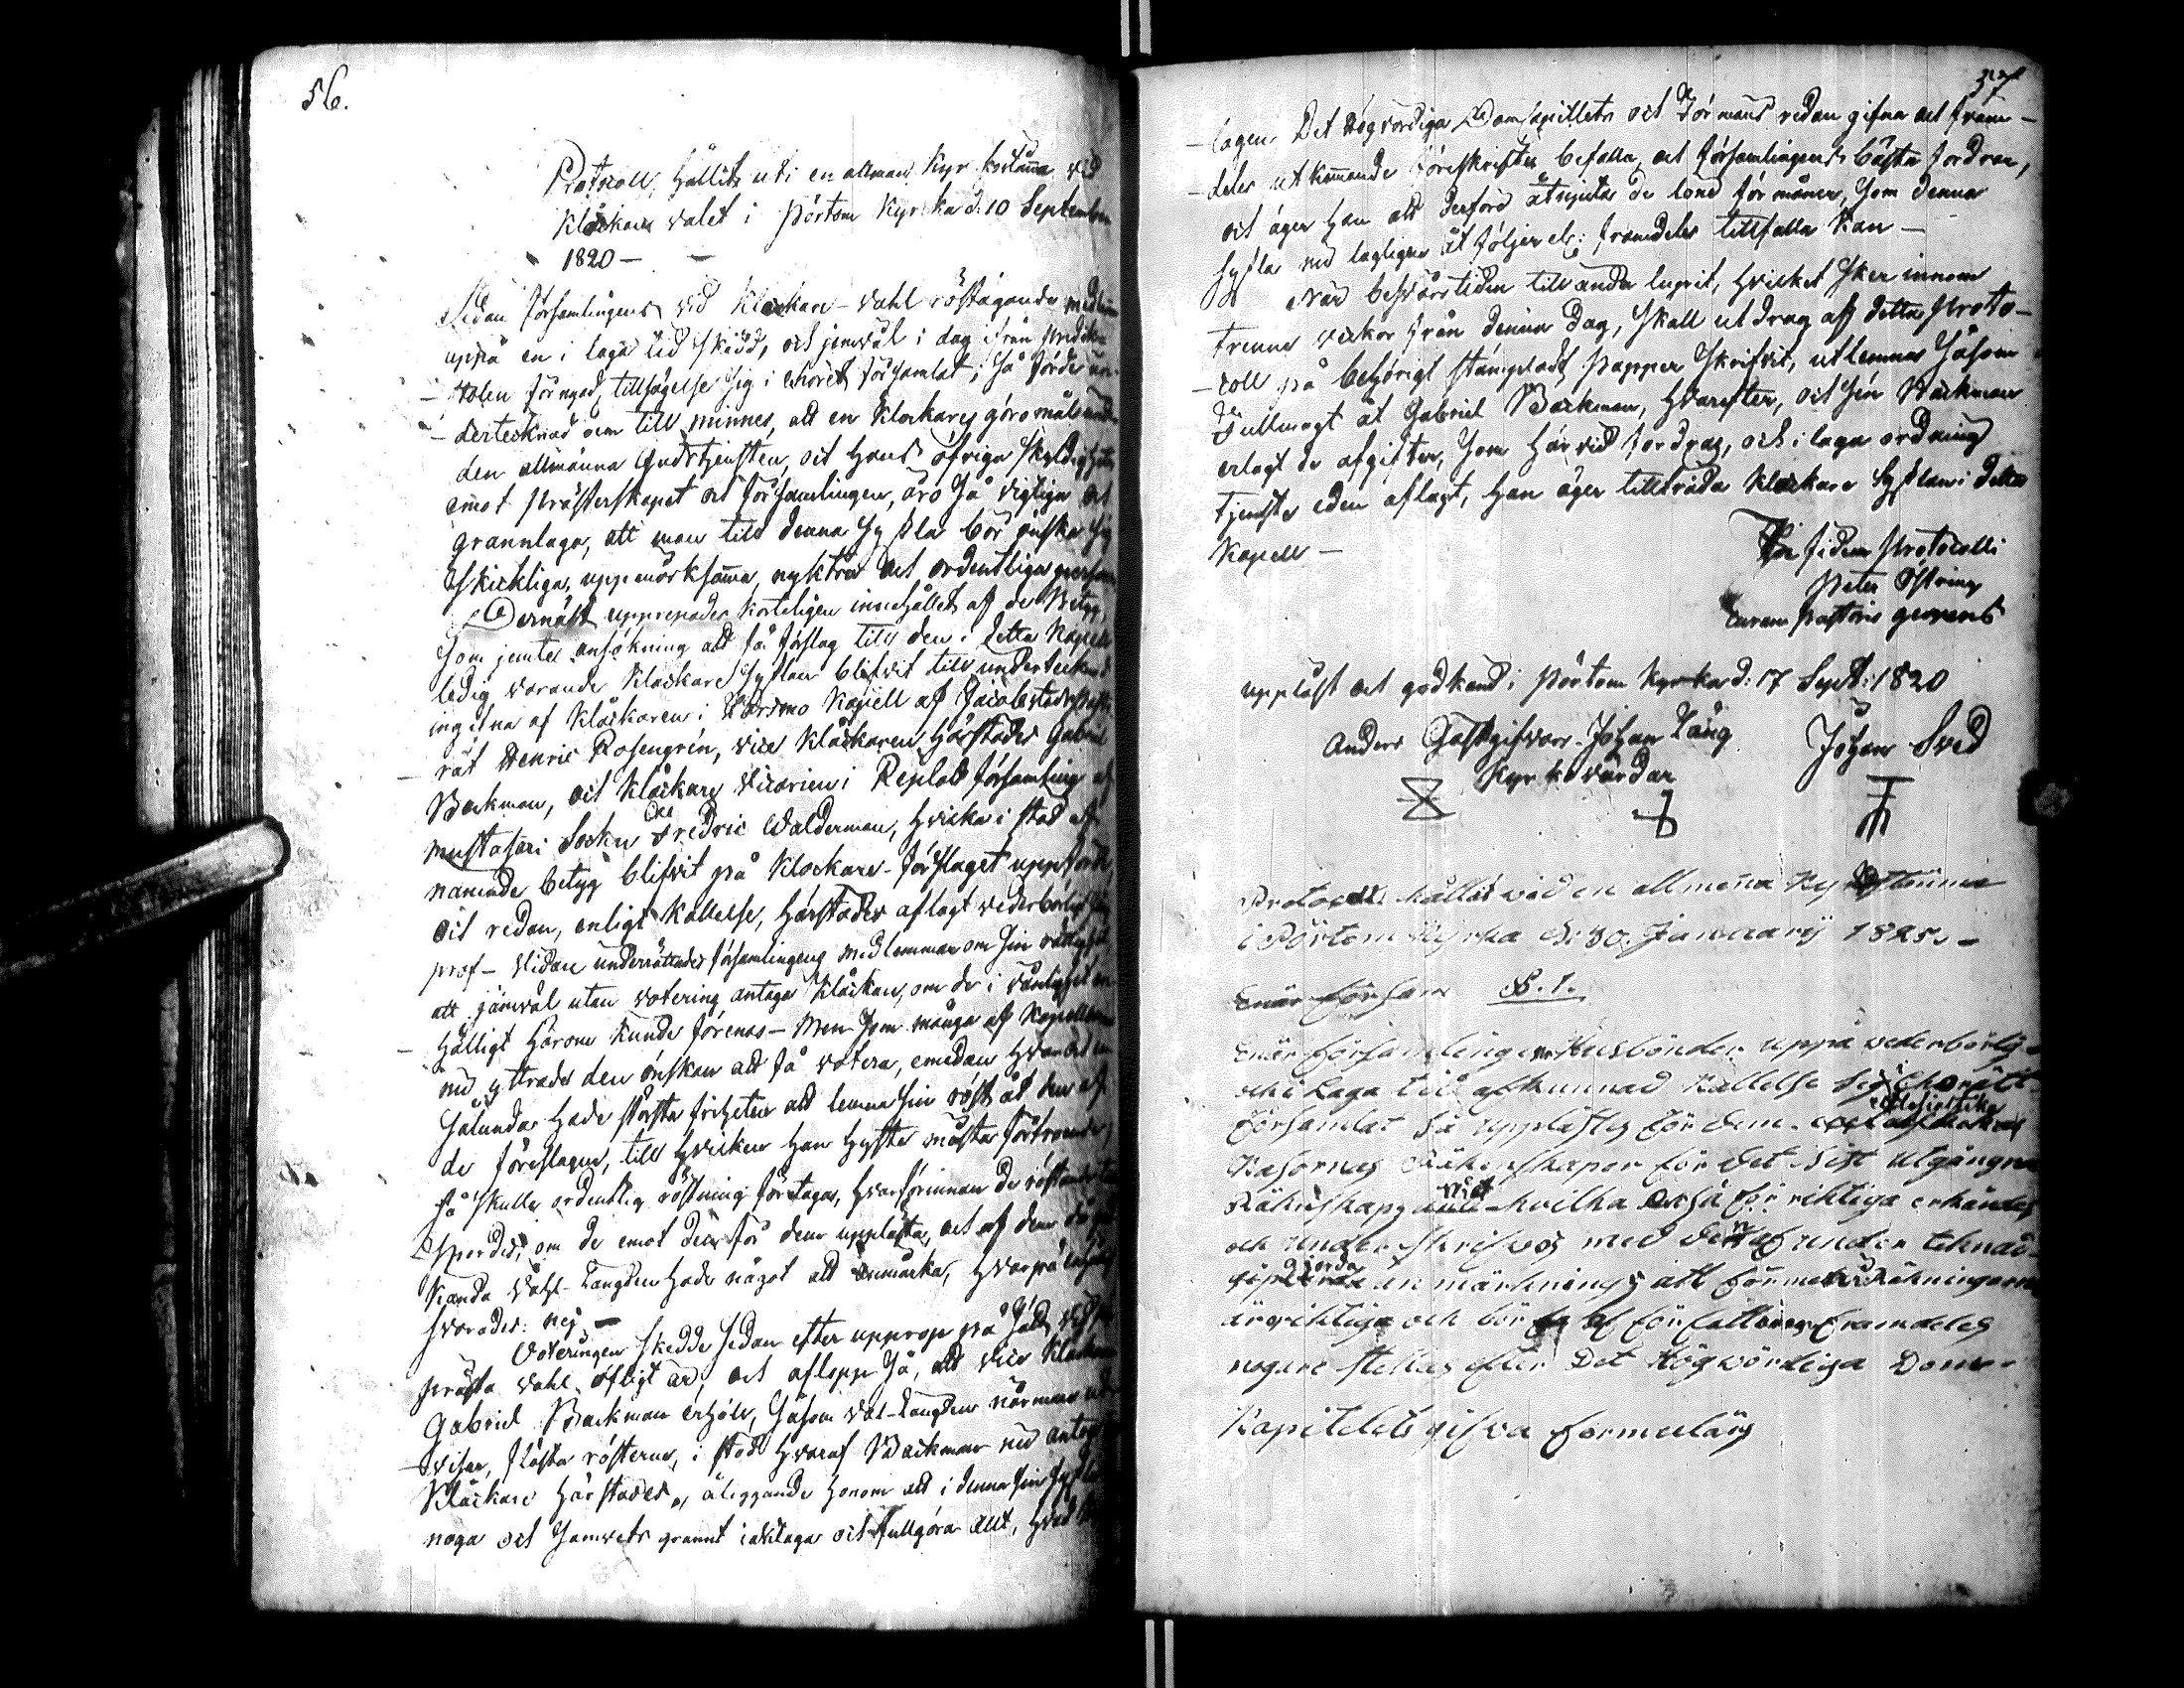 56.
Protocoll, hållit uti en allmän Kyrkostämma vid
Klåckare valet i Pörtom Kyrka d: 10 September
1820 —
Sedan Församlingens vid Klockare-Vahl röstägande medlemmar
uppå en i laga tid skedd, och jemväl i dag ifrån Predik-
stolen förnyad, tillsägelse sig i Choret församlat; så förde un-
dertecknad dem till minnes, att en Klockares göromål under
den allmänna Gudstjensten, och hans öfriga skyldigheter
emot Presterskapet och Församlingen, äro så vigtiga och
grannlaga, att man till denna Sysla bör önska sig
skickliga, uppmärksamma, nyktra och ordentliga personer
Dernäst upprepades korteligen innehållet af de Betyg,
som jemte ansökning att få förslag till den i detta Kapell
ledig varande Klockare Syslan blifvit till undertecknad
ingifna af Klåckaren i Kapell af Jacobstads Past-
rat Henric Rosengrén, vice Klåckaren härstädes Gabriel
Backman, och Klåckare Vicarien i Replot församling af
Mustasari Socken Fredric Walderman, hvilka i stöd af
nämnde betyg blifvit på Klockare-förslaget uppförde
och redan, enligt Kallelse, härstädes aflagt vederbörliga
prof — Vidare underrättades församlingens medlemmar om sin rättighet
att jämväl utan votering antaga Klåckare, om de i
hälligt härom kunde förenas — Men som många af Kapellboerne
nu yttrade den önskan att få votera, emedan hvar och en
sålunda hade största friheten att lemna sin röst åt den af
de föreslagne, till hvilken han hyste mästa förtroende,
så skulle ordentlig röstning företagas, hvarförinnan de röstande till-
spordes, om de emot den för dem upplästa, och af dem
kända Vahl-Längden hade något att anmärka, hvarpå
svarades: nej —
Voteringen skedde sedan efter upprop på sätt, vid
Prästa vahl öfligt är, och aflopp så, att vice Klockaren
Gabriel Backman erhölt, såsom Val-Längden närmare ut-
visar, flästa rösterna, i stöd hvaraf Backman nu antogs
Klåckare härstädes, åliggande honom att i denna sin sysla
noga och samvets grannt iakttaga och fullgöra allt, hvad
57
lagen Det Högvördiga Domkapitlets och Förmans redan gifna och fram-
deles utkommande föreskrifter befalla, och församlingens bästa fordrar,
och äger han att derföre åtnjuta de löneförmåner, som denna
Sysla nu lagligen åtföljer el: framdeles tillfalla kan —
När besvärstiden till ända luppit, hvilket sker innom
trenne veckor från denna dag, skall utdrag af detta Proto-
coll på behörigt stämpladt papper skrifvit, utlemnas såsom
Fullmagt åt Gabriel Backman, hvarefter, och sen Backman
erlagt de afgifter, som härvid fordras, och i laga ordning
tjenste eden aflagt, han äger tillträda Klockare Syslan i detta
Kapell —
In fidem Protocolli
Peter Östring
Curam Pastoris gerens
uppläst och godkänd i Pörtom Kyrka d: 17 Sept: 1820
Anders Gästgifvars Johan Lång Johan Sved
Kyrkovärdar
Protocoll hållit vid en allmena Kyrkostämma
i Pörtom Kyrka d: 30. Januarij 1825. —
Enär Församl §. 1.
Enär Församlingens Husbönder uppå vederbörlig-
och i Laga tid afkunnad Kallelse sig i Choret
Församlat så upplästes för dem Ecclesiastike
Kassornas Räkenskaper för det sist utgångne
Räkenskaps året hvilka också för riktiga erkändes
och underskrefvos med den af under teknad
gjorda an märkning att förmelte Räkningarne
är riktiga och bör af författaren framdeles
nogare ställas efter Det Högwördiga Dom-
Kapitelets gifva formulärs